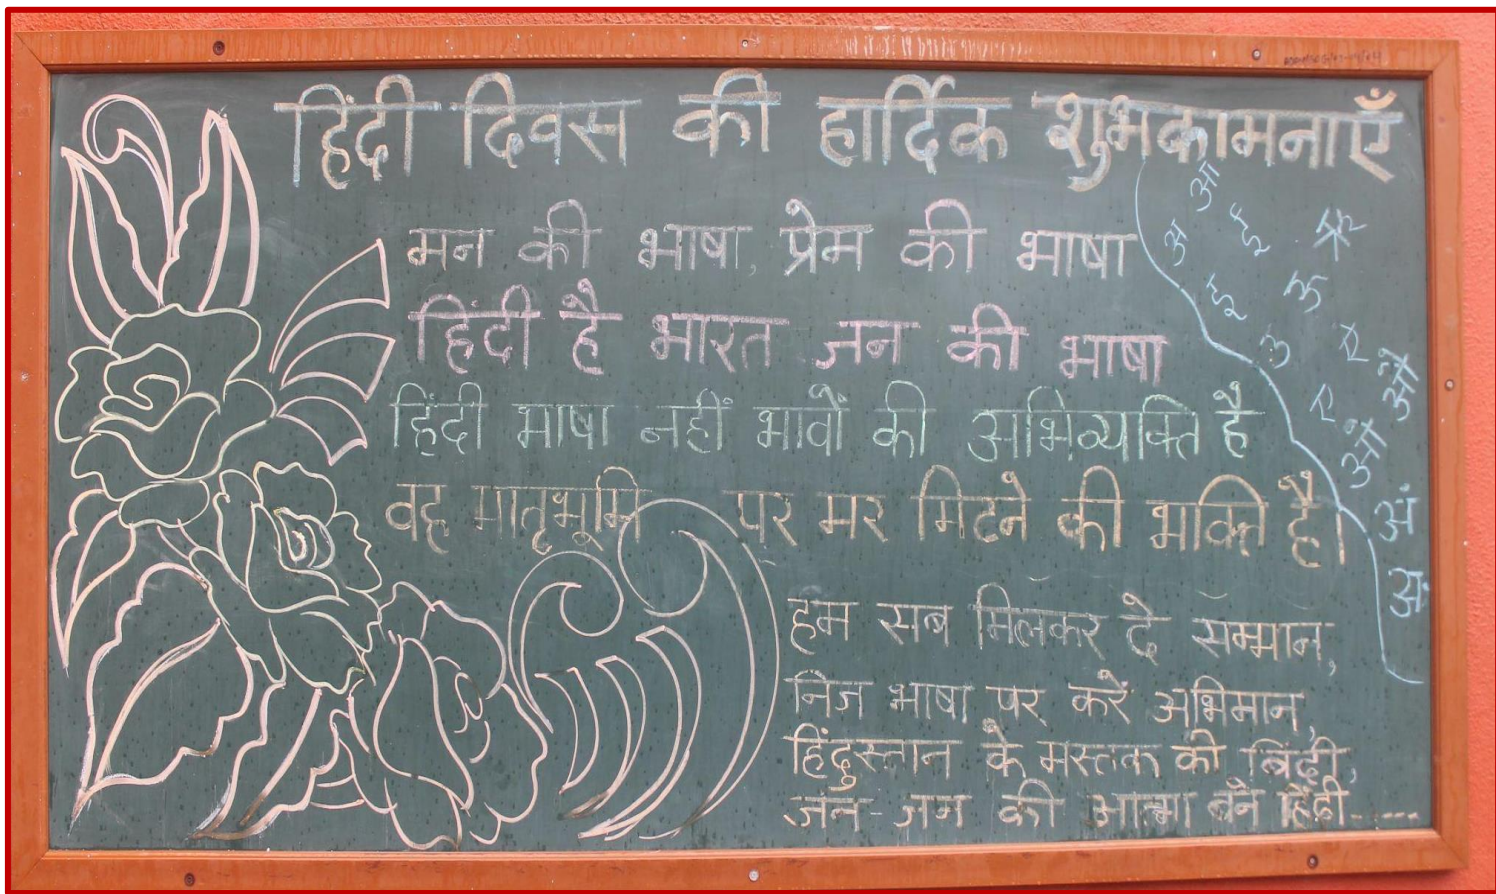 हिंदी दिवस की हार्दिक शुभकामनाएँ
मन की भाषा, प्रेम की भाषा
हिंदी है भारत जन की भाषा
हिंदी भाषा नहीं भावों की अभिव्यक्ति है
वह मातृभूमि पर मर मिटने की भक्ति है।
हम सब मिलकर दे सम्मान,
निज भाषा पर करें अभिमान,
हिंदुस्तान के मस्तक की बिंदी,
जन-जन की आत्मा बने हिंदी.....
अ आ
इ ई
उ ऊ ऋ
ए ए
ओ औ
अं